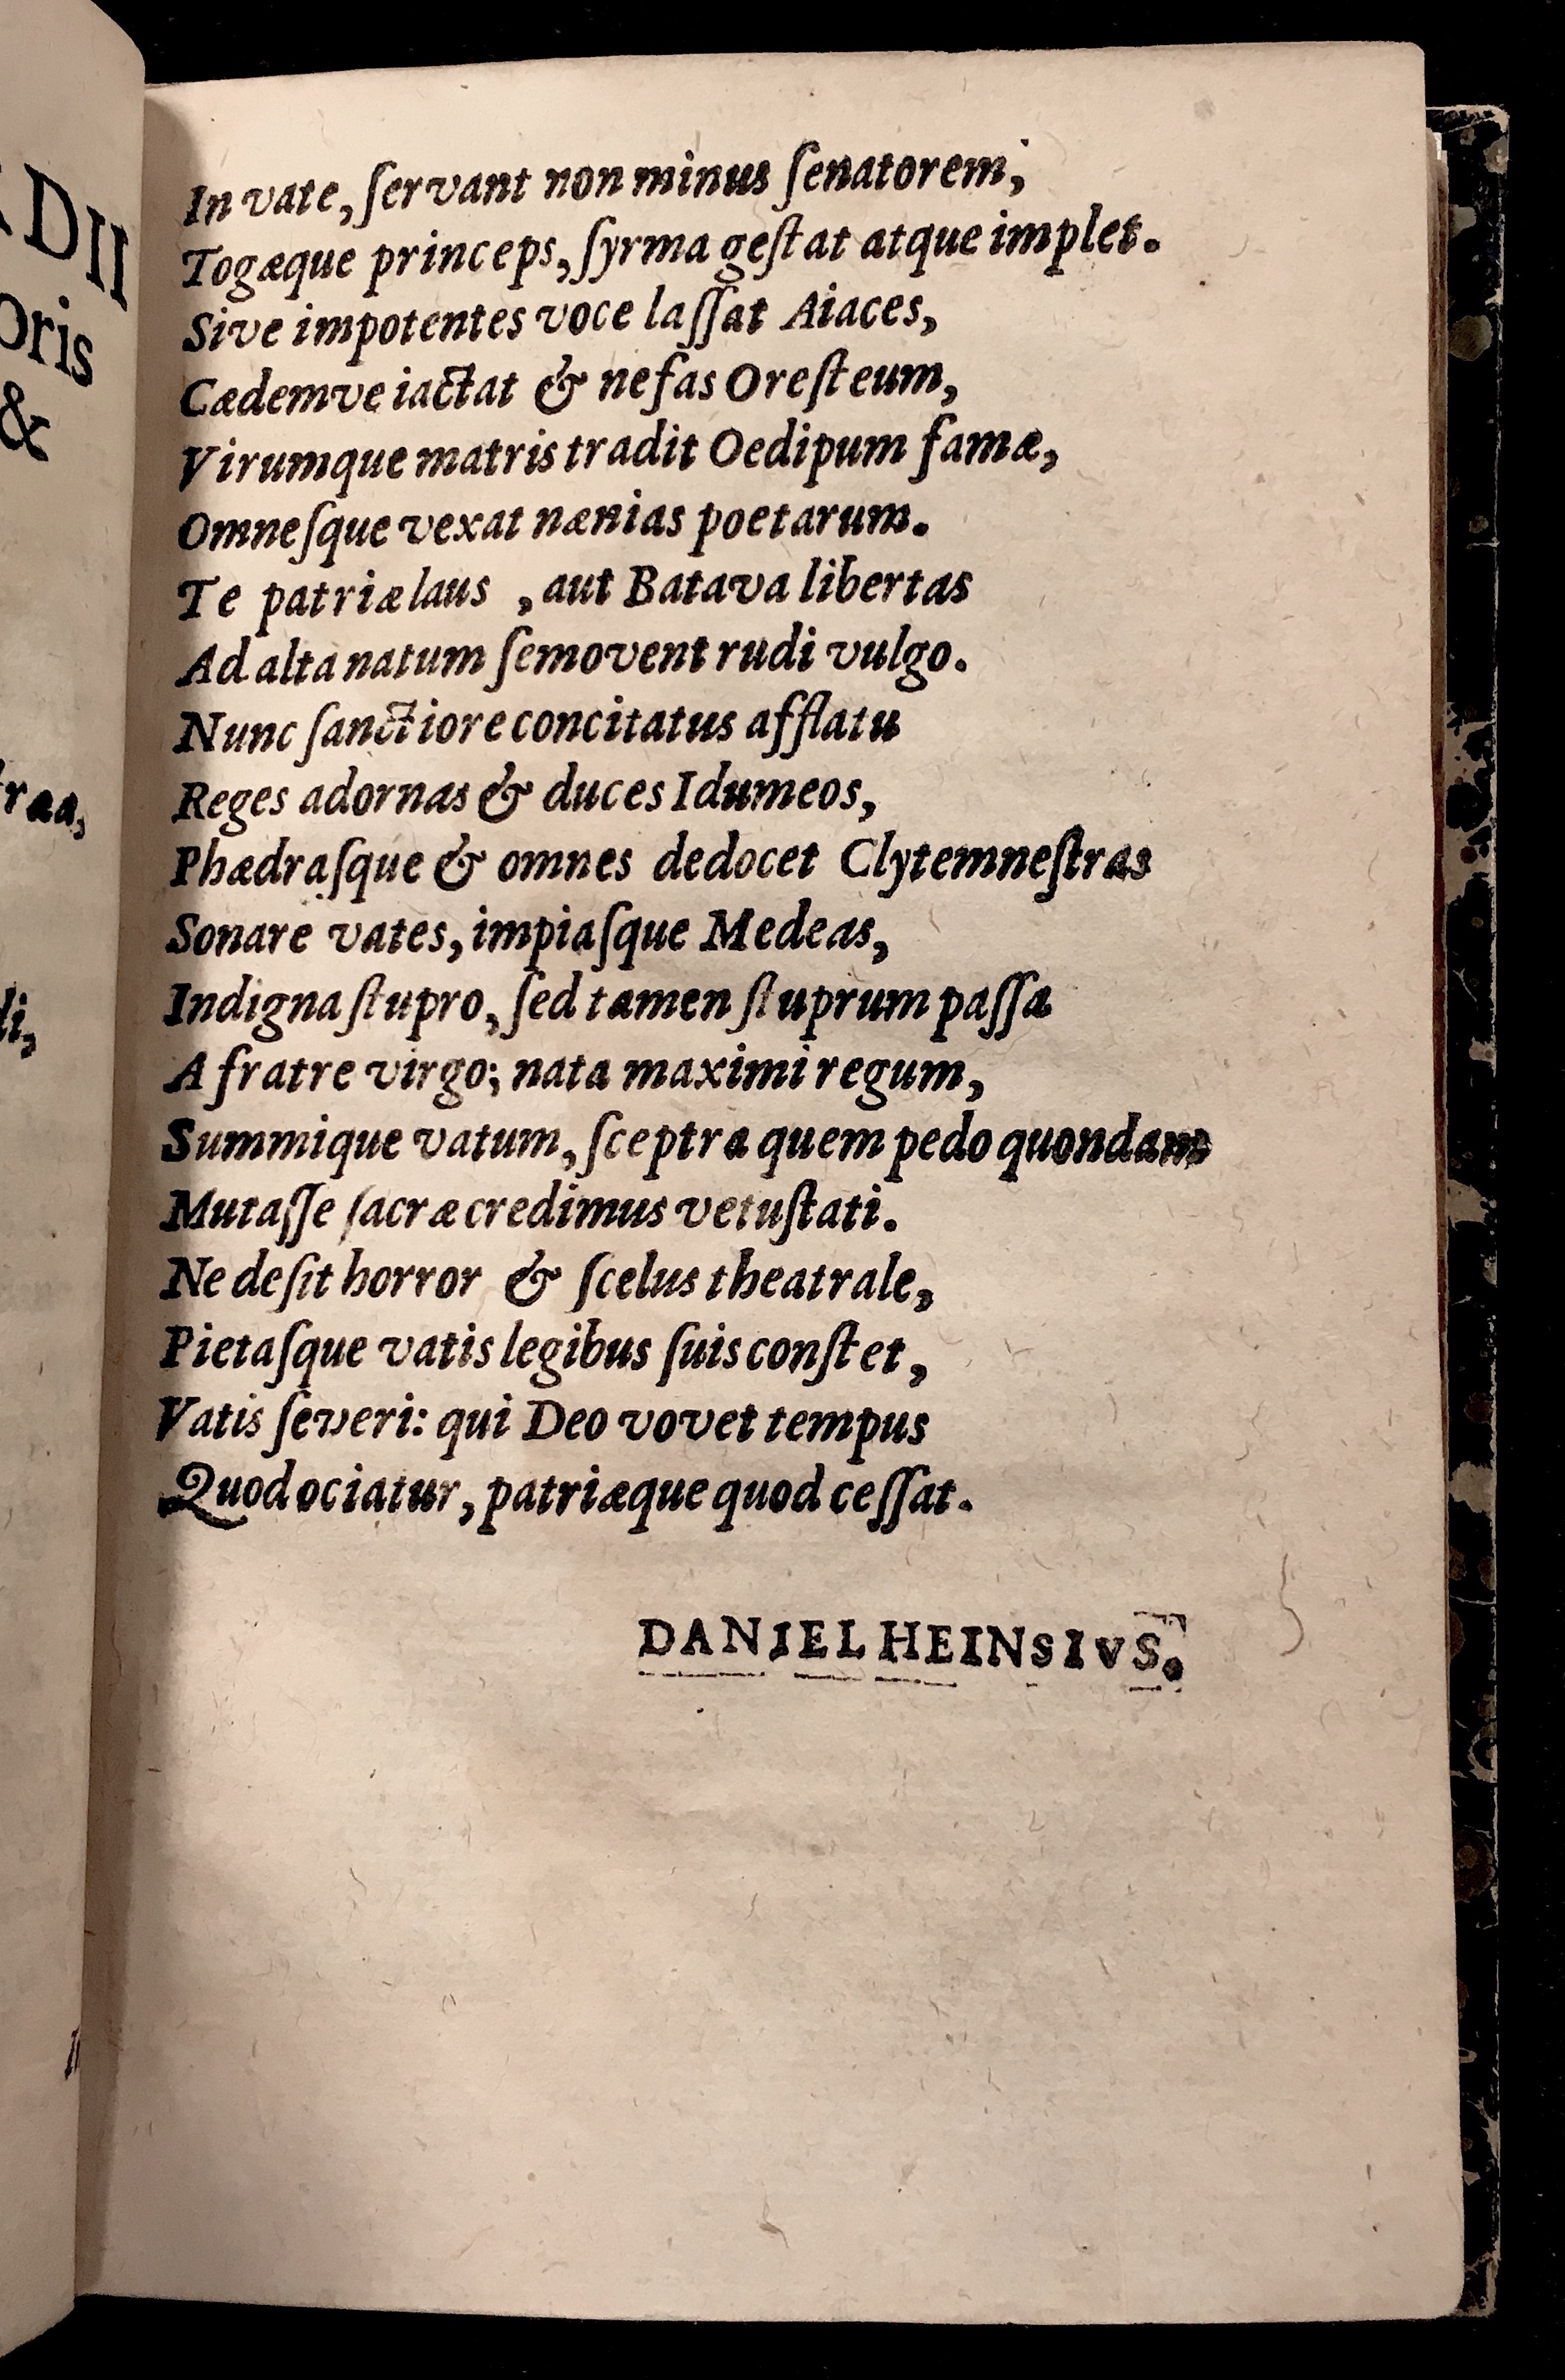 DII
oris
&
raa,
di,
In vate, ſervant non minus ſenatorem,
Togæque princeps, ſyrma geſtat atque implet.
Sive impotentes voce laſſat Aiaces,
Cædemve iactat & nefas Oreſteum,
Virumque matris tradit Oedipum famæ,
Omneſque vexat nænias poetarum.
Te patriæ laus , aut Batava libertas
Ad alta natum ſemovent rudi vulgo.
Nunc ſanctiore concitatus afflatu
Reges adornas & duces Idumeos,
Phædraſque & omnes dedocet Clytemneſtras
Sonare vates, impiaſque Medeas,
Indigna ſtupro, ſed tamen ſtuprum paſſa
A fratre virgo; nata maximi regum,
Summique vatum, ſceptra quem pedo quondam
Mutaſſe ſacræ credimus vetuſtati.
Ne deſit horror & ſcelus theatrale,
Pietaſque vatis legibus ſuis conſtet,
Vatis ſeveri: qui Deo vovet tempus
Quod ociatur, patriæque quod ceſſat.
DANIEL HEINSIVS.